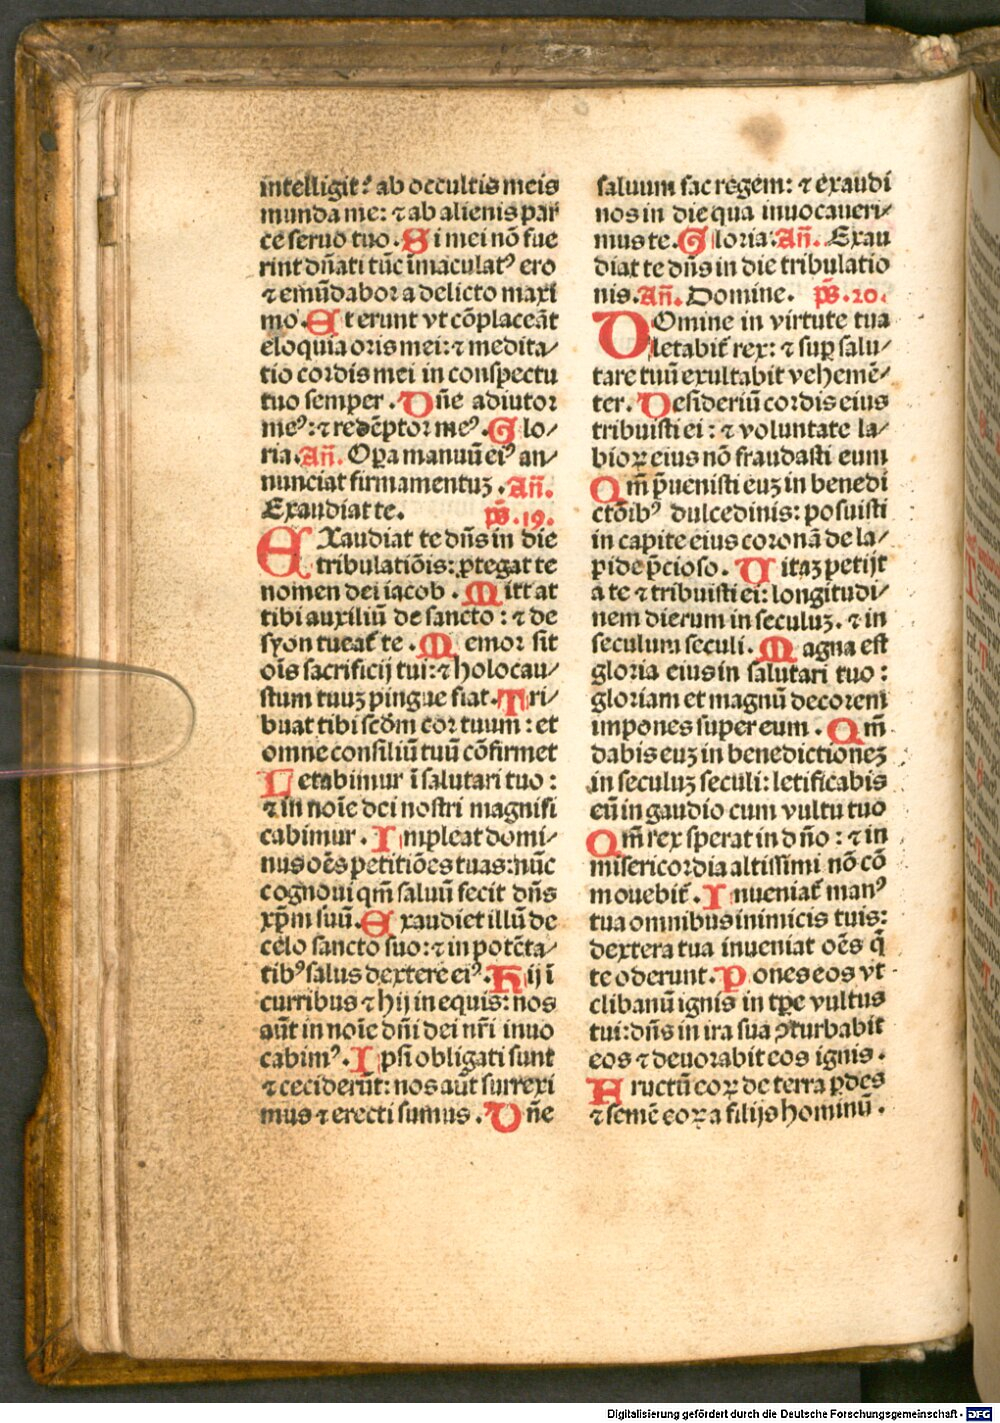 intelligit: ab occultis meis
munda me: ⁊ ab alienis par
ce seruo tuo. Si mei nō fue
rint dn̄ati tūc īmaculatꝰ ero
⁊ emūdabor a delicto maxi
mo. Et erunt vt cōplaceāt
eloquia oris mei: ⁊ medita/
tio cordis mei in conspectu
tuo semper. Dn̄e adiutor
meꝰ: ⁊ redēptor meꝰ. Glo/
ria. An̄. Oꝑa manuū eiꝰ an/
nunciat firmamentuꝫ. An̄.
Exaudiat te. ps̄. 19.
EXaudiat te dn̄s in die
tribulatiōis: ꝓtegat te
nomen dei iacob. Mittat
tibi auxiliū de sancto: ⁊ de
syon tueat̄ te. Memor sit
oīs sacrificij tui: ⁊ holocau/
stum tuuꝫ pingue fiat. Tri/
buat tibi scd̄m cor tuum: et
omne consiliū tuū cōfirmet
Letabimur ī salutari tuo:
⁊ in noīe dei nostri magnifi
cabimur. Impleat domi/
nus oēs petitiōes tuas: nūc
cognoui qm̄ saluū fecit dn̄s
xp̄m suū. Exaudiet illū de
celo sancto suo: ⁊ in potēta/
tibꝰ salus dextere eiꝰ. Hij ī
curribus ⁊ hij in equis: nos
aūt in noīe dn̄i dei nr̄i inuo
cabimꝰ. Ipsi obligati sunt
⁊ ceciderūt: nos aūt surrexi
mus ⁊ erecti sumus. Dn̄e
saluum fac regem: ⁊ exaudi
nos in die qua inuocaueri/
mus te. Gloria. An̄. Exau
diat te dn̄s in die tribulatio
nis. An̄. Domine. ps̄. 20.
DOmine in virtute tua
letabit̄ rex: ⁊ suꝑ salu/
tare tuū exultabit vehemē/
ter. Desideriū cordis eius
tribuisti ei: ⁊ voluntate la/
bioꝝ eius nō fraudasti eum
Qm̄ p̄uenisti euꝫ in benedi
ctōibꝰ dulcedinis: posuisti
in capite eius coronā de la/
pide p̄cioso. Uitaꝫ petijt
a te ⁊ tribuisti ei: longitudi/
nem dierum in seculuꝫ. ⁊ in
seculum seculi. Magna est
gloria eius in salutari tuo:
gloriam et magnū decorem
impones super eum. Qm̄
dabis euꝫ in benedictioneꝫ
in seculuꝫ seculi: letificabis
eū in gaudio cum vultu tuo
Qm̄ rex sperat in dn̄o: ⁊ in
misericordia altissimi nō cō
mouebit̄. Inueniat̄ manꝰ
tua omnibus inimicis tuis:
dextera tua inueniat oēs q̄
te oderunt. Pones eos vt
clibanū ignis in tꝑe vultus
tui: dn̄s in ira sua ꝯturbabit
eos ⁊ deuorabit eos ignis.
Fructū eoꝝ de terra ꝑdes
⁊ semē eoꝝ a filijs hominū.
Digitalisierung gefördert durch die Deutsche Forschungsgemeinschaft - DFG